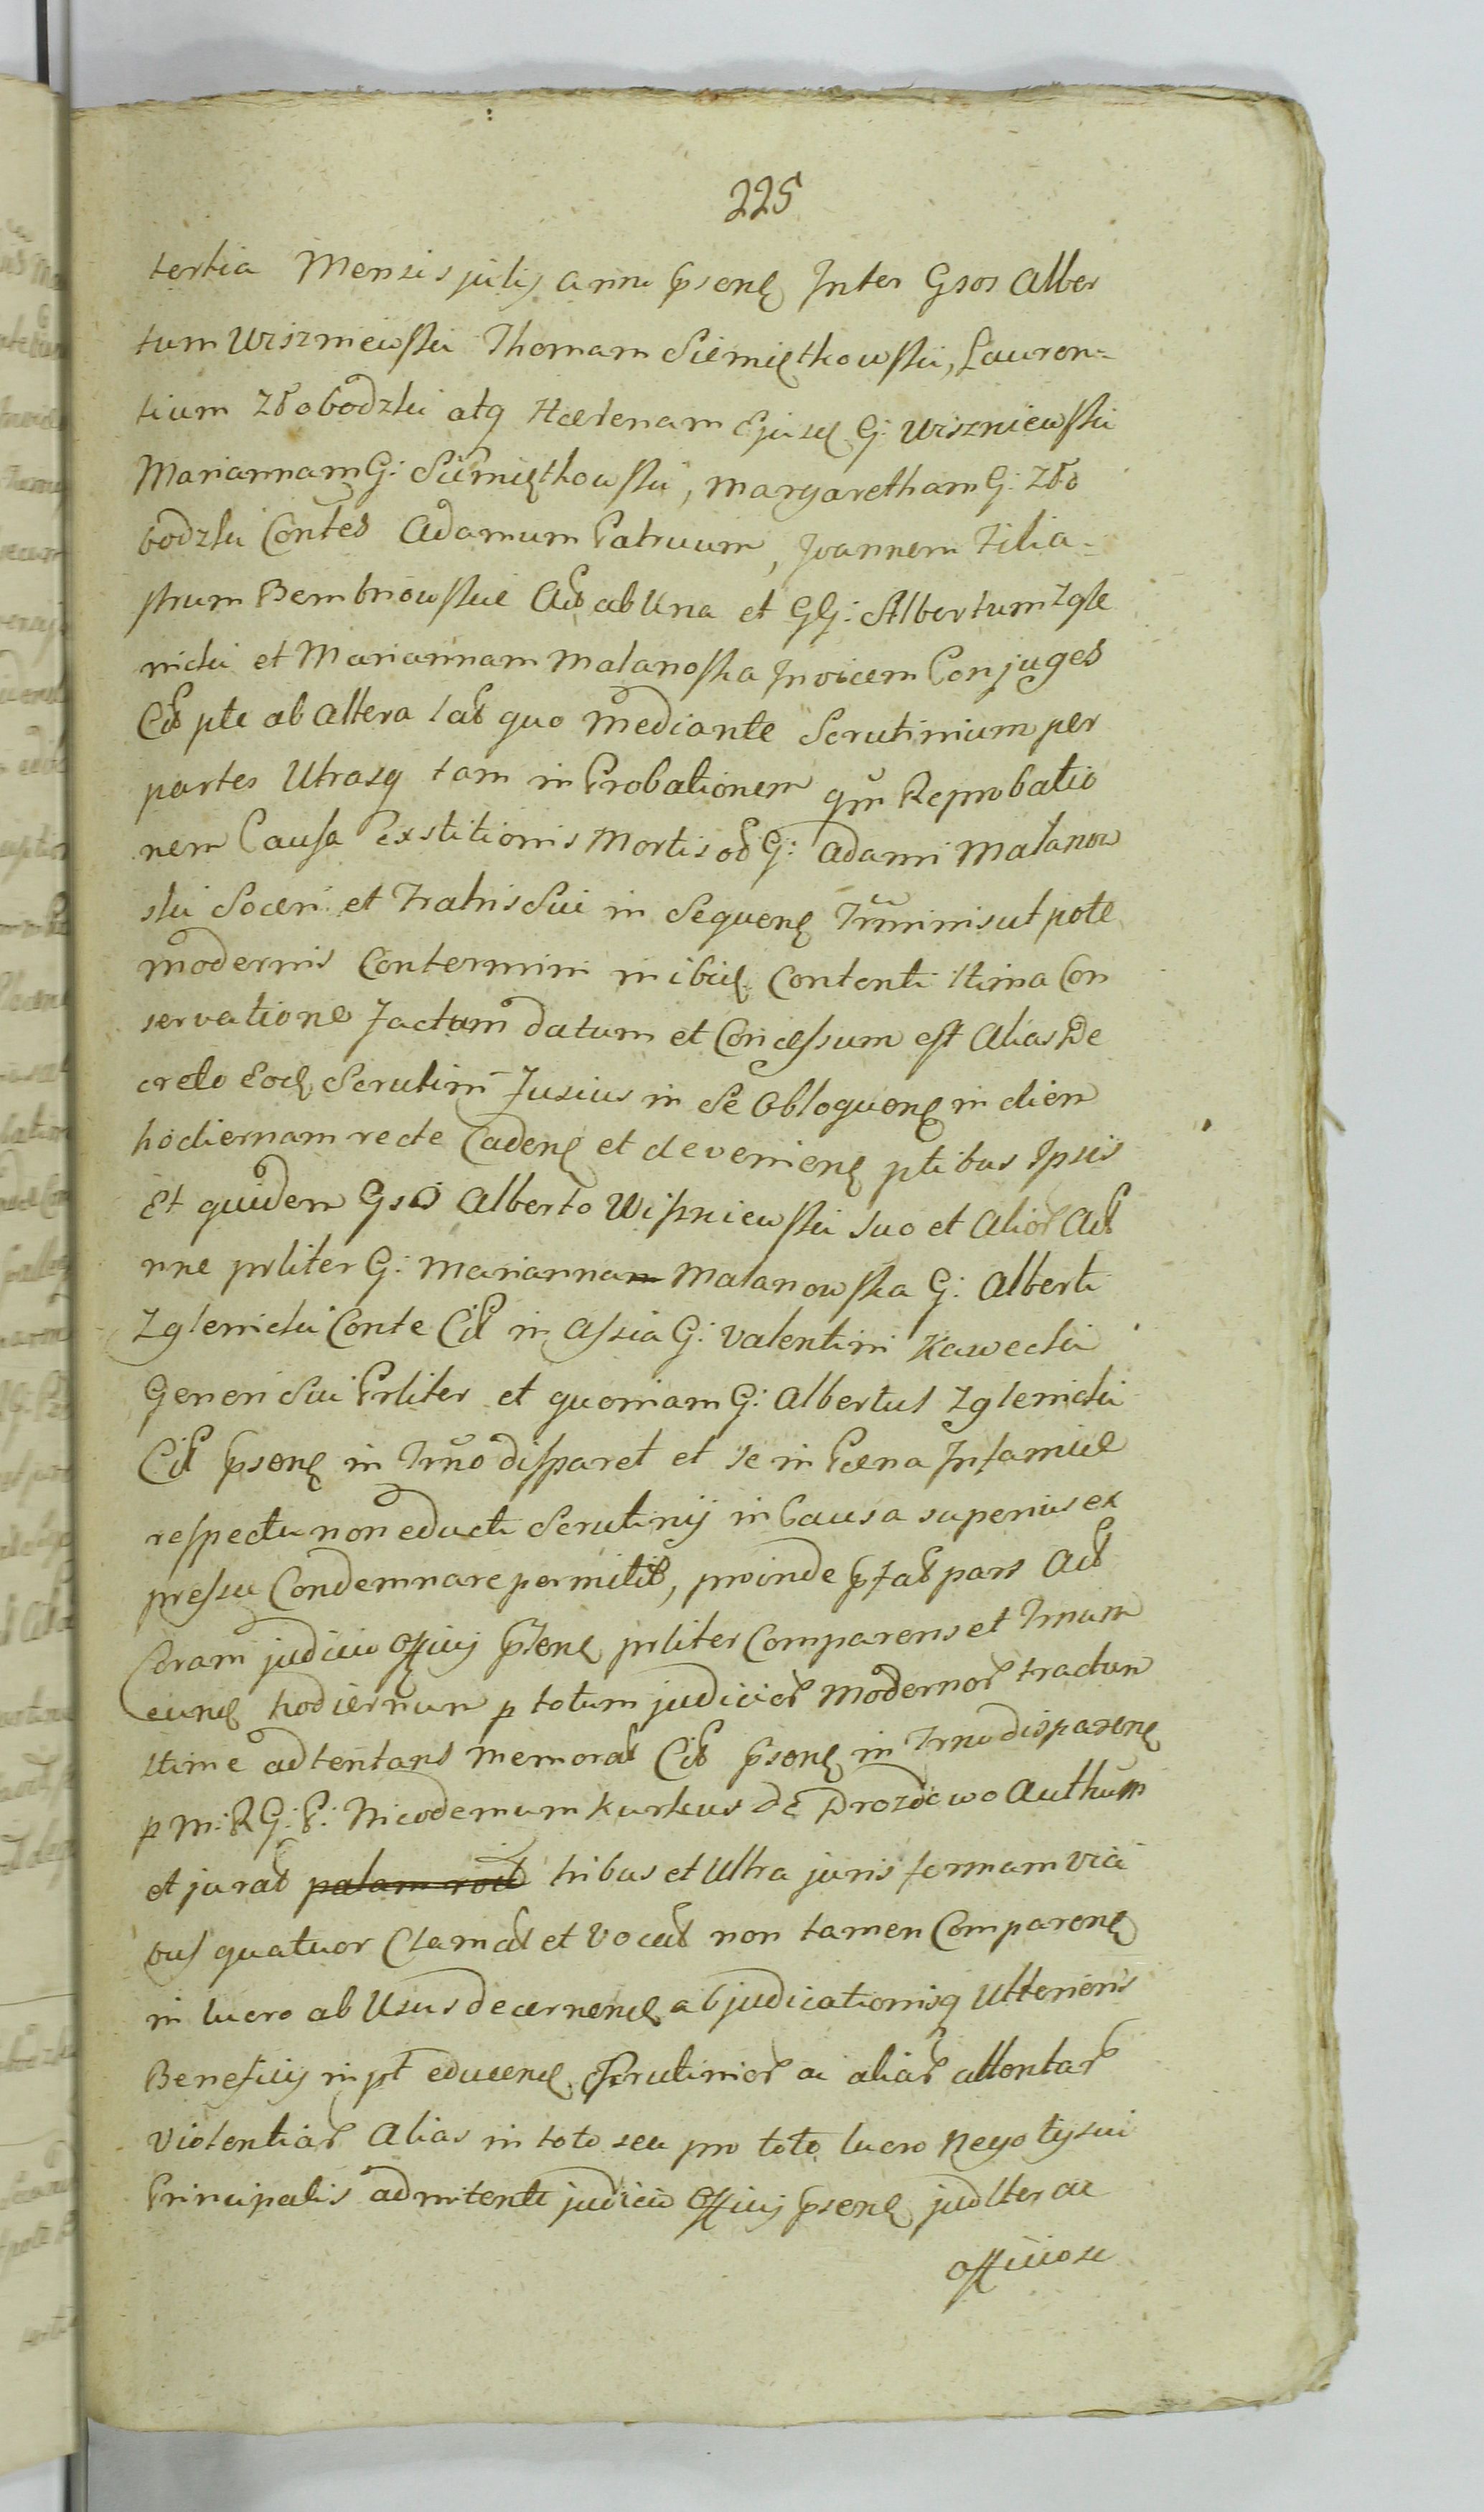 225
tertia Mensis julij anni psenę Inter Gsos Alber
tum Wiszniewski Thomam Siemiętkowski, Lauren=
tium Złobodzki atq Haelenam Ejusd G: Wiszniewski
Mariannam G: Siemiętkowski, Margaretham G: Zło
bodzki Contes Adamum Patruum, Joannem Filia=
strum Bembnowskie Act ab Una et GG: Albertum Zgle
nicki et Mariannam Malanoska Invicem Conjuges
Cit pte ab Altera lat quo Mediante Scrutinium per
partes Utrasq tam in Probationem qm Reprobatio
nem Causa Exstitionis Mortis od G: Adami Malanow
ski Soceri et Fratris Sui in Sequenę Trminis utpote
modernis Contermini in ibidę Contenti ltima Con
servatione Factum datum et Concessum est Alias De
creto Eodę Scrutini Fusius in Se Obloquenę in diem
hodiernam recte Cadenę et devenienę ptibus Ipsis
Et quidem Gso Alberto Wiszniewski suo et Alior Act
nne prliter G: Mariannam Malanowska G: Alberti
Zglenicki Conte Cit in Assia G: Valentini Kawecki
Generi Sui Prliter et quoniam G: Albertus Zglenicki
Cit psenę in Trno disparet et se in Paena Infamiae
respectu non educti Scrutinij in Causa superius ex
pressa Condemnare permitit, proinde pfat pars Act
Coram judicio Officij psenę prliter Comparens et Trnum
eundę hodiernum p totum judicior Modernor tractum
ltime adtentans memorat Cit psenę in Trno disparenę
p M: R G: P: Nicodemum Kurkus de Drozdewo Authum
et jurat palam tribus et Ultra juris formam vici
bus quatuor Clamat et Vocat non tamen Comparenę
in lucro ab Usus decernendę abjudicationisq Ulterioris
Beneficij in pt educendę Scrutinior ac aliar attentar
Violentiar Alias in toto seu pro toto lucro Negotij sui
Principalis admitenti judicio Officij psenę judlter ac
officiose